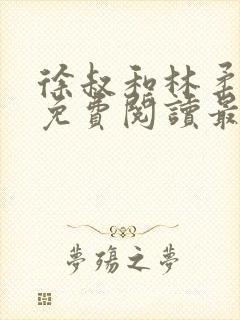 徐叔和林柔
免費閱讀最
夢殤之夢